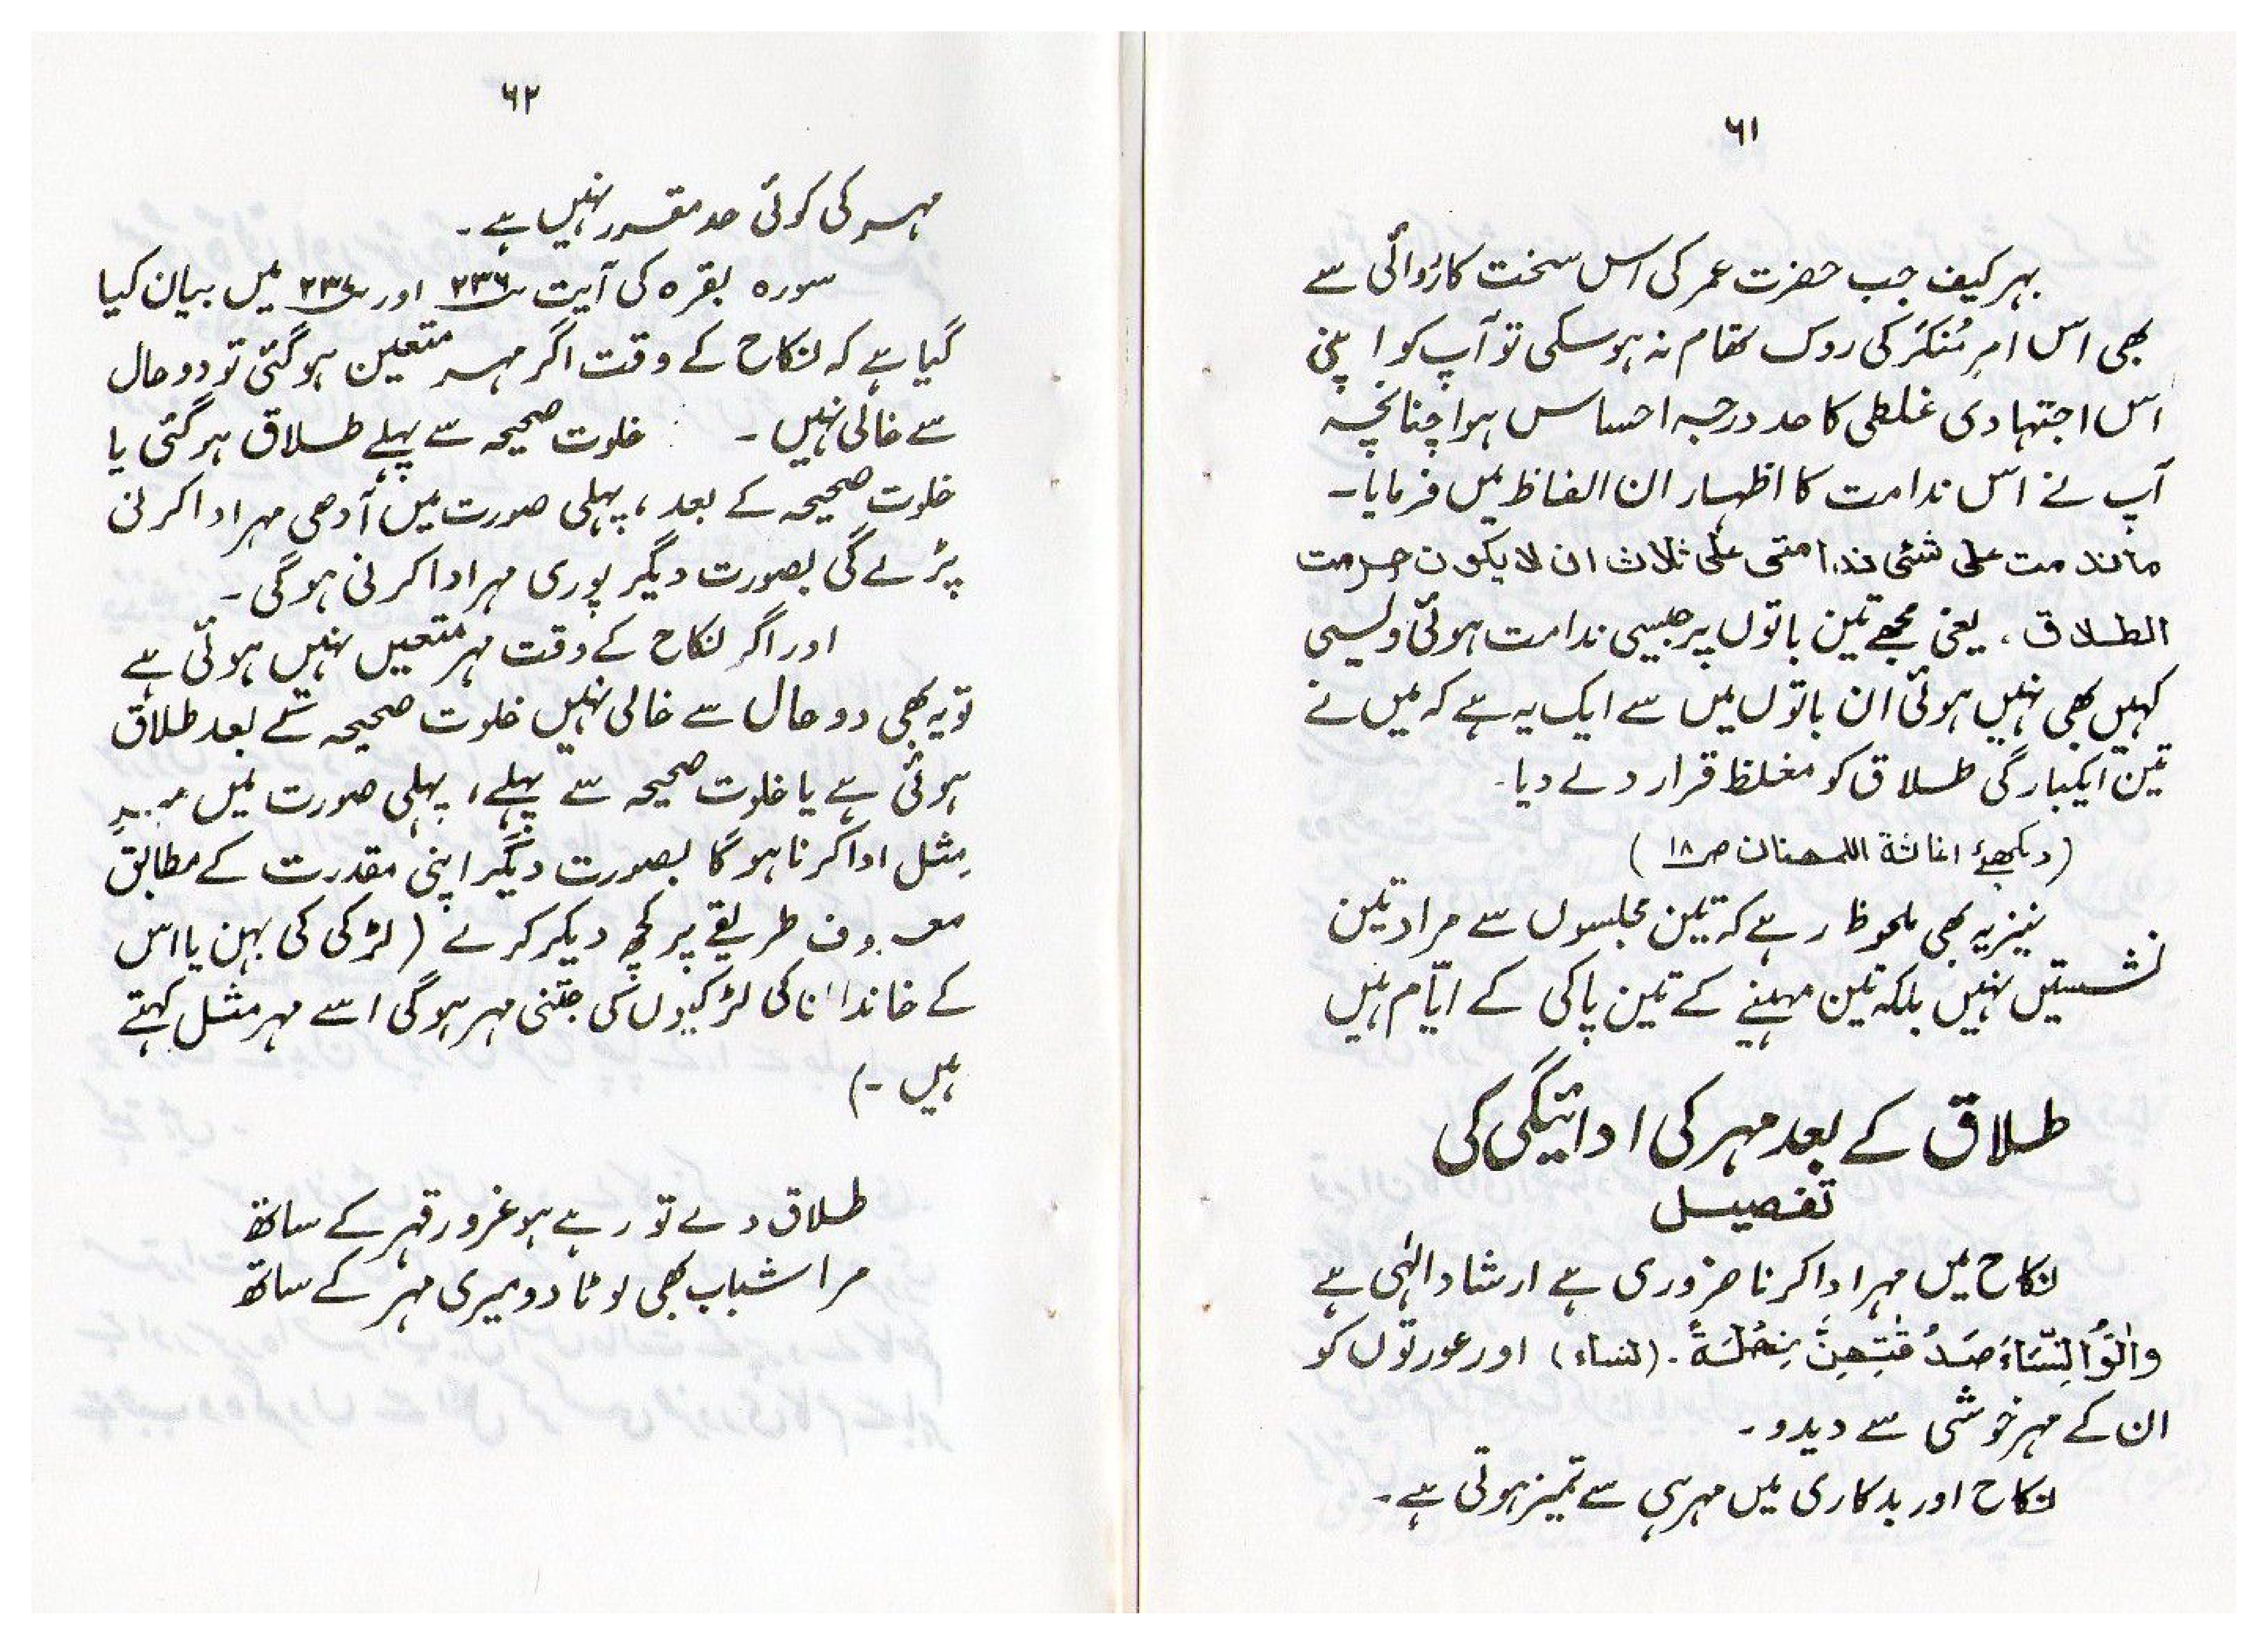 ۶۱
بہر کیف جب حضرت عمر کی اس سخت کاروائی سے
بھی اس امرِ مُنکَر کی روک تھام نہ ہوسکی تو آپ کو اپنی
اس اجتہادی غلطی کا حد درجہ احساس ہوا چنانچہ
آپ نے اس ندامت کا اظہار ان الفاظ میں فرمایا۔
ماندمت علی شئی ندامتی علی ثلاث ان لا یکون حرمت
الطلاق ۔ یعنی مجھے تین باتوں پر جیسی ندامت ہوئی ویسی
کہیں بھی نہیں ہوئی ان باتوں میں سے ایک یہ ہے کہ میں نے
تین ایکبارگی طلاق کو مغلظ قرار دے دیا۔
(دیکھئے اغاثۃ اللھفان ص۱۸)
نیز یہ بھی ملحوظ رہے کہ تین مجلسوں سے مراد تین
نشستیں نہیں بلکہ تین مہینے کے تین پاکی کے ایّام ہیں
طلاق کے بعد مہر کی ادائیگی کی
تفصیل
نکاح میں مہر ادا کرنا ضروری ہے ارشاد الہٰی ہے
وَاٰتُوا النِّسَاءَ صَدُقٰتِهِنَّ نِحْلَةً ۔ (نساء) اور عورتوں کو
ان کے مہر خوشی سے دیدو ۔
نکاح اور بدکاری میں مہر ہی سے تمیز ہوتی ہے ۔
۶۲
مہر کی کوئی حد مقرر نہیں ہے ۔
سورہ بقرہ کی آیت ۲۳۶ اور ۲۳۷ میں بیان کیا
گیا ہے کہ نکاح کے وقت اگر مہر متعین ہوگئی تو دو حال
سے خالی نہیں ۔ خلوت صحیحہ سے پہلے طلاق ہر گئی یا
خلوت صحیحہ کے بعد ، پہلی صورت میں آدھی مہر ادا کرنی
پڑے گی بصورت دیگر پوری مہر ادا کرنی ہوگی ۔
اور اگر نکاح کے وقت مہر متعین نہیں ہوئی ہے
تو یہ بھی دو حال سے خالی نہیں خلوت صحیحہ کے بعد طلاق
ہوئی ہے یا خلوت صحیحہ سے پہلے ، پہلی صورت میں مہرِ
مِثل ادا کرنا ہوگا بصورت دیگر اپنی مقدرت کے مطابق
معروف طریقے پر کچھ دیکر کرے (لڑکی کی بہن یا اس
کے خاندان کی لڑکیوں کی جتنی مہر ہوگی اسے مہر مثل کہتے
ہیں ۔)
طلاق دے تو رہے ہو غرور قہر کے ساتھ
مرا شباب بھی لوٹا دو میری مہر کے ساتھ